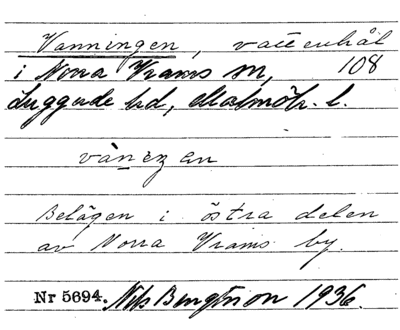 Vanningen, vattenhål
i Norra Vrams sn, 108
Luggude hd, Malmöh. l.
vàneʒ en
Belägen i östra delen
av Norra Vrams by.
Nr 5694. Nils Bengtsson 1936.